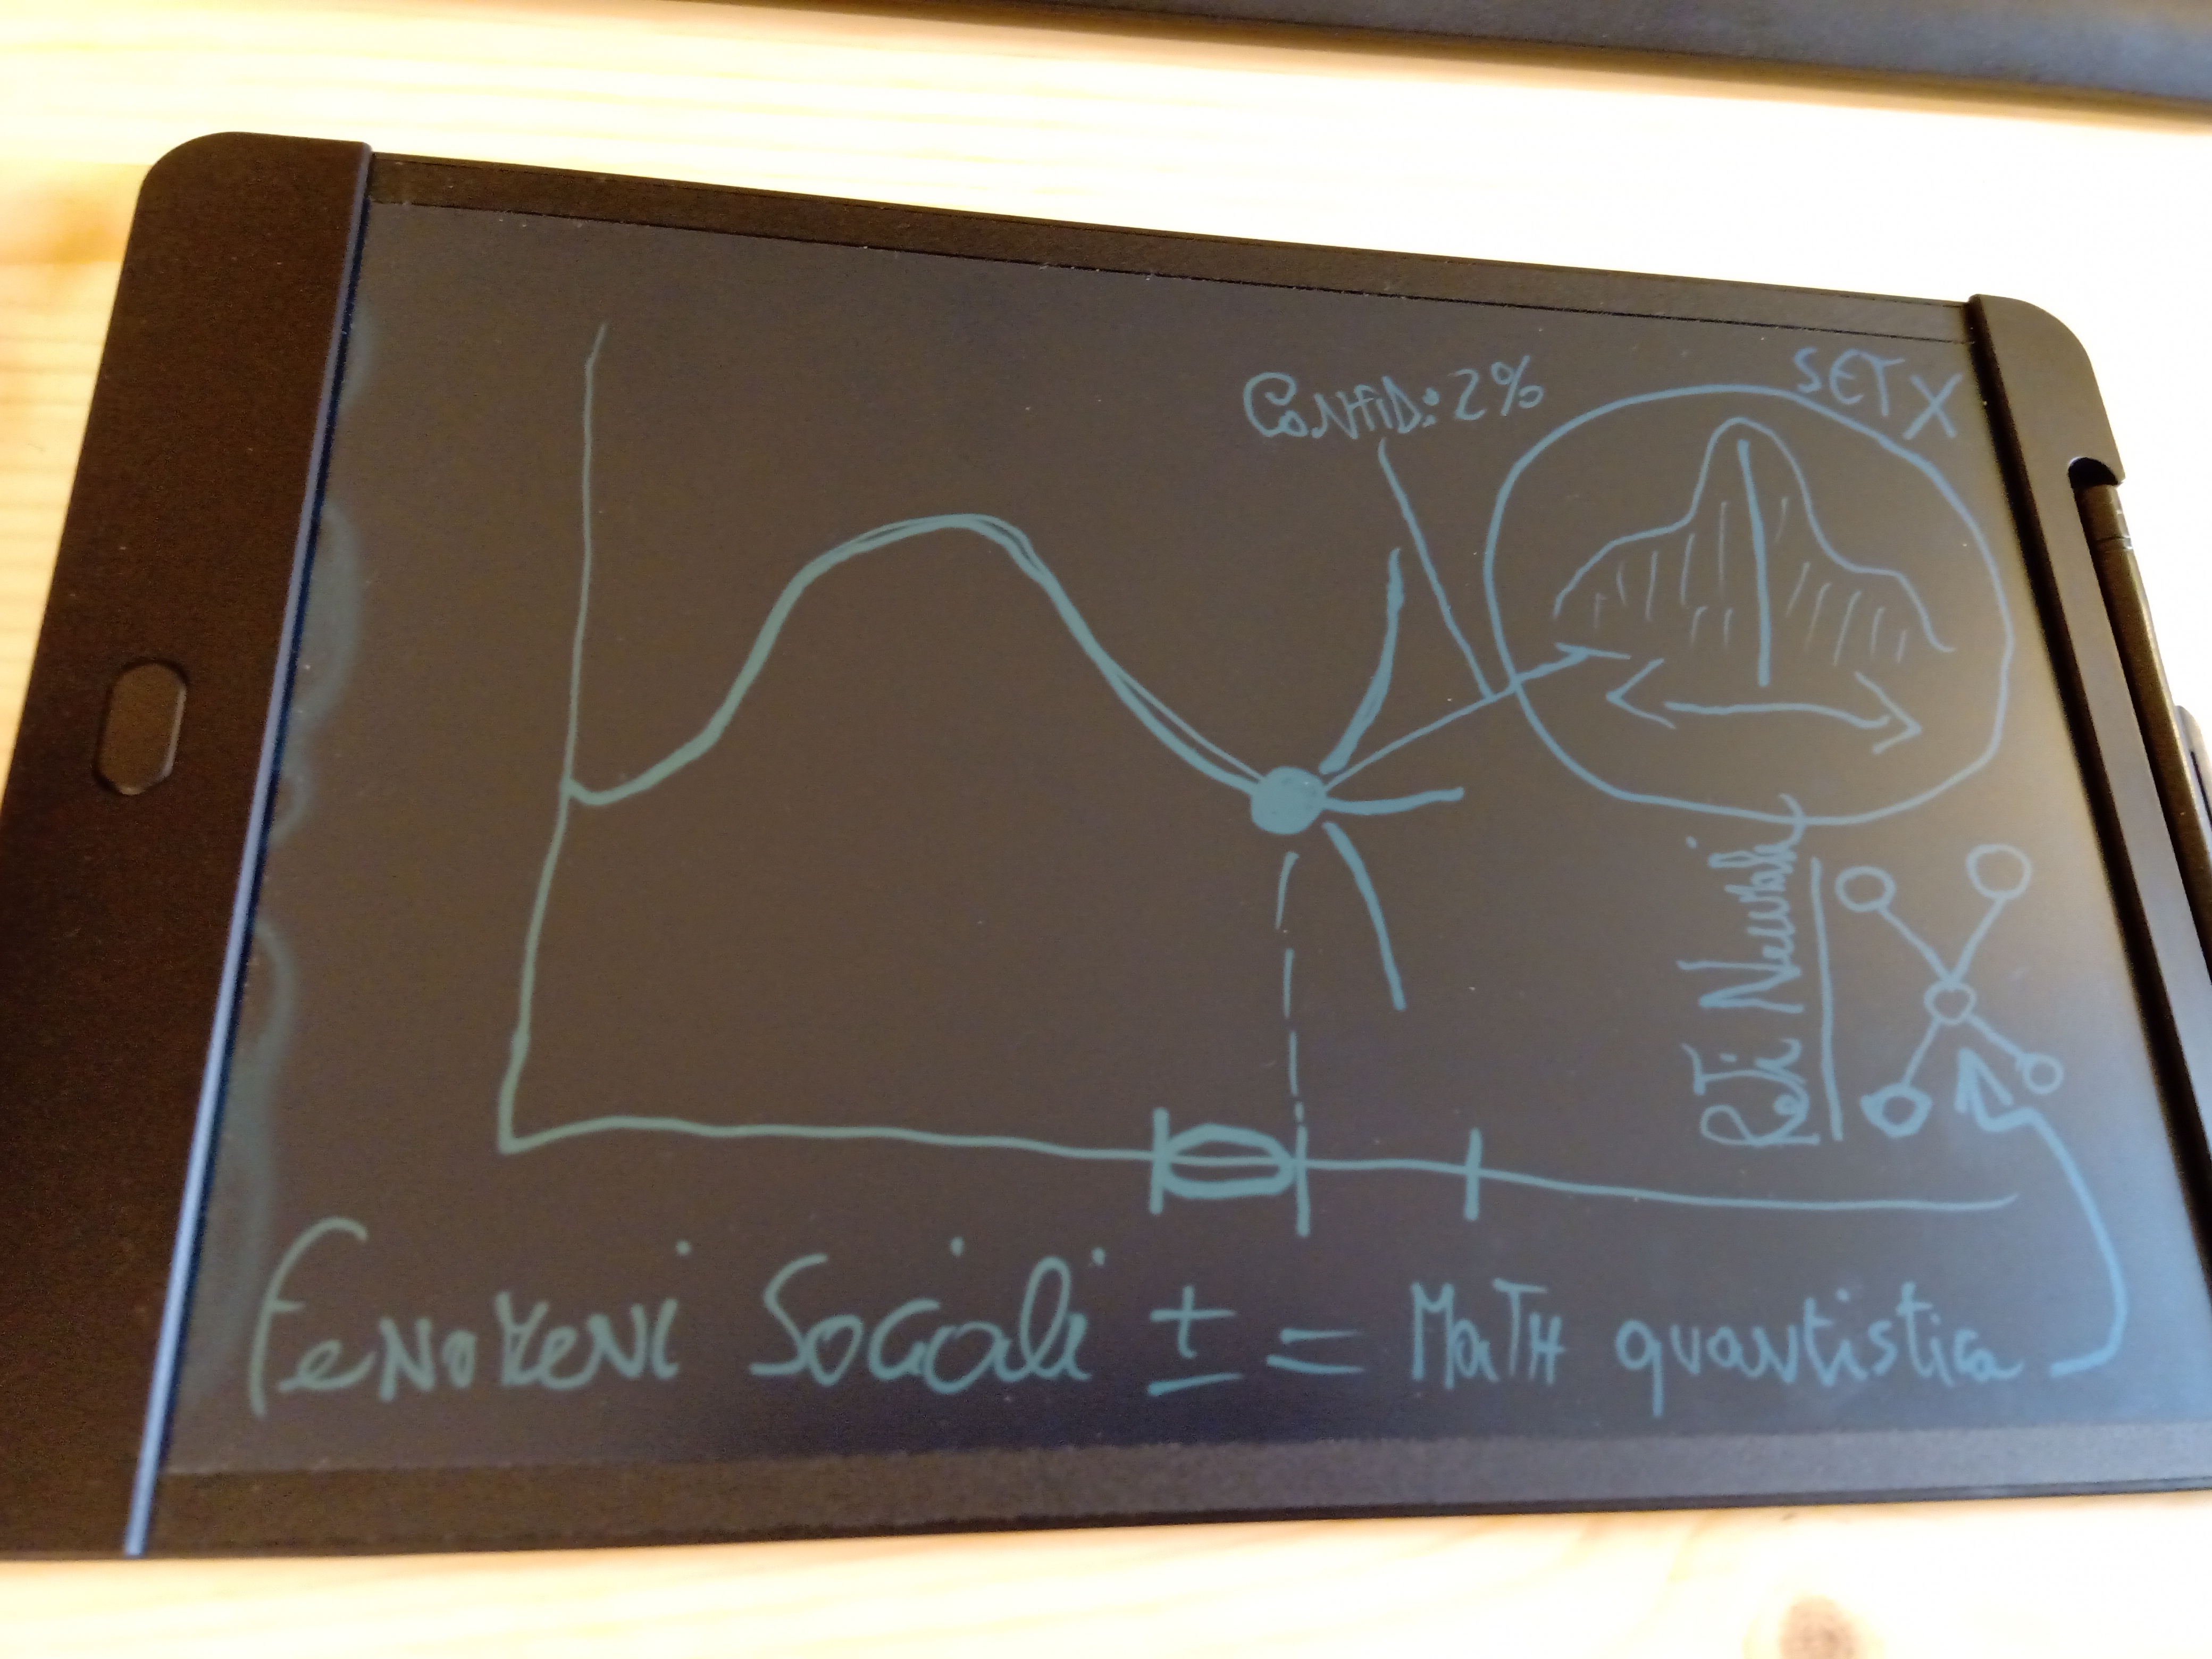 Confid: 2%
SET X
Reti Neurali
Fenomeni Sociali ± = Math quantistica